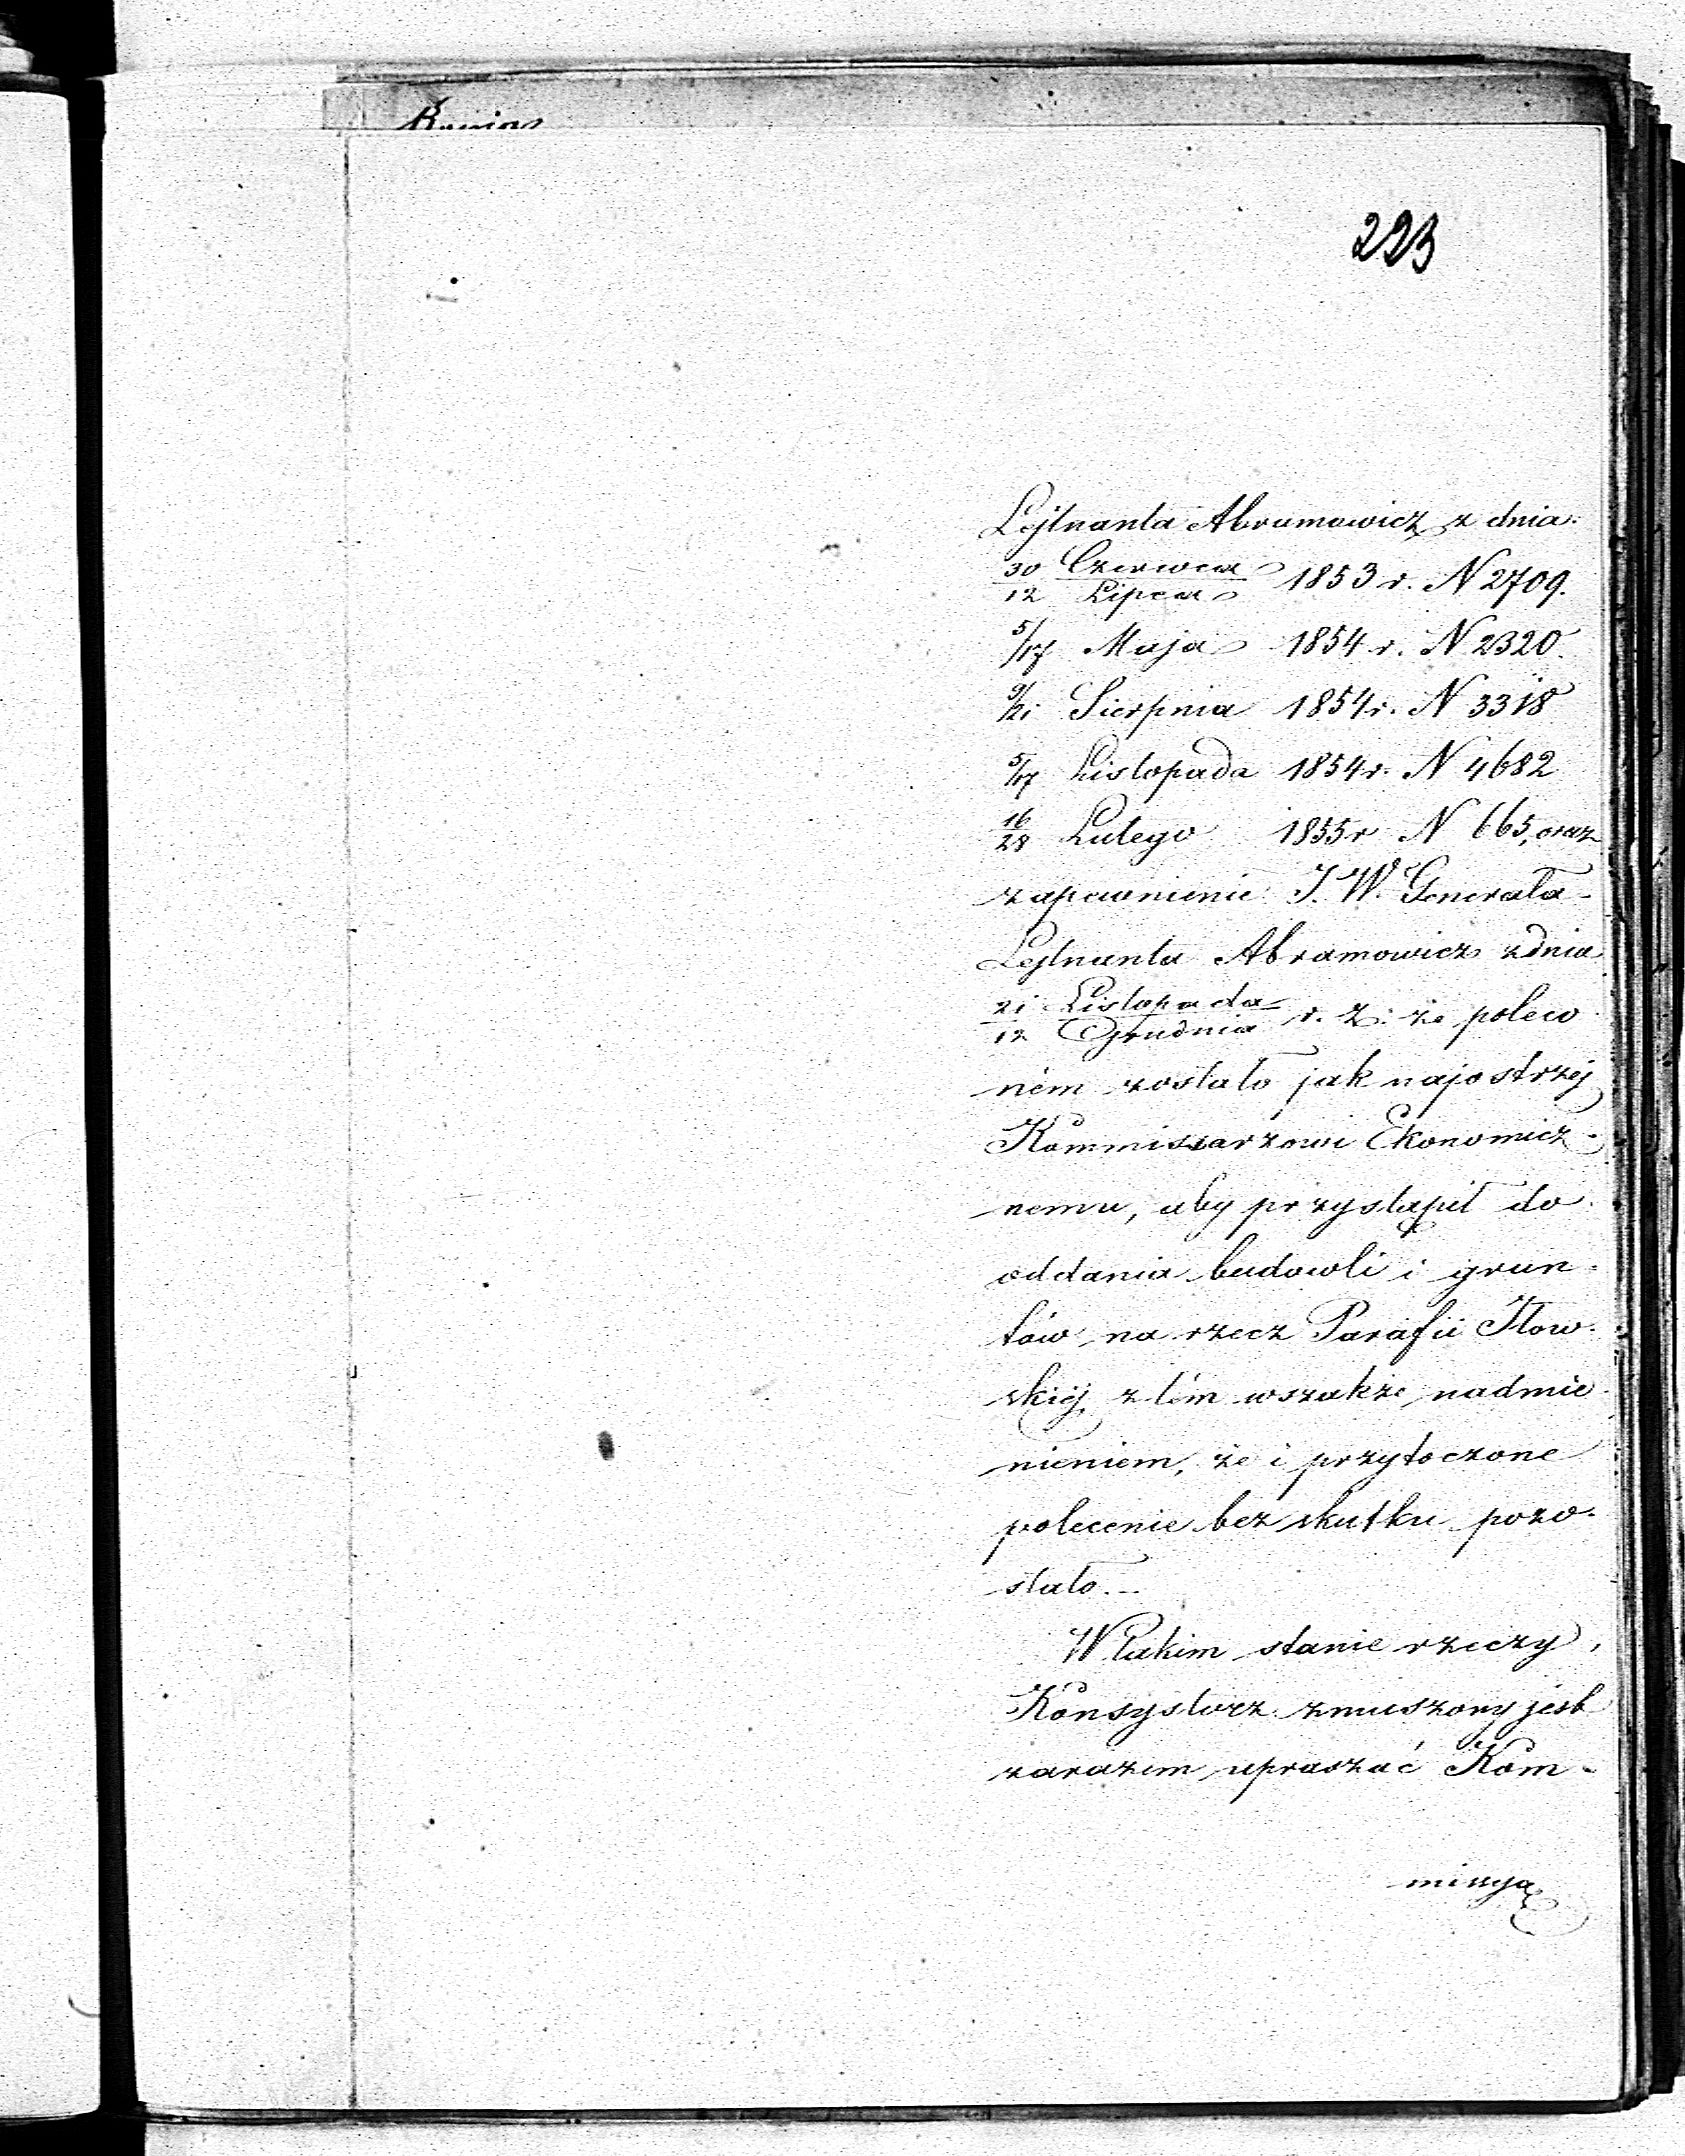 223
Lejtnanta Abramowicz z dnia
30/12 Czerwca/Lipca 1853 r. N 2709.
5/17 Maja 1854 r. N 2320.
9/21 Sierpnia 1854 r. N 3318
5/17 Listopada 1854 r. N 4682
16/28 Lutego 1855 r N 665, oraz
zapewnienie J. W. Generała
Lejtnanta Abramowicz z dnia
21/12 Listopada/Grudnia r. z: że poleco
ném zostało jak najostrzej
Kommissarzowi Ekonomicz-
nemu, aby przystąpił do
oddania budowli i grun-
tów na rzecz Parafii Iłow-
skiéj z tém wszakże nadmie-
nieniem, że i przytoczone
polecenie bez skutku pozo-
stało.—
W takim stanie rzeczy,
Konsystorz zmuszony jest
zarazem upraszać Kom-
missya